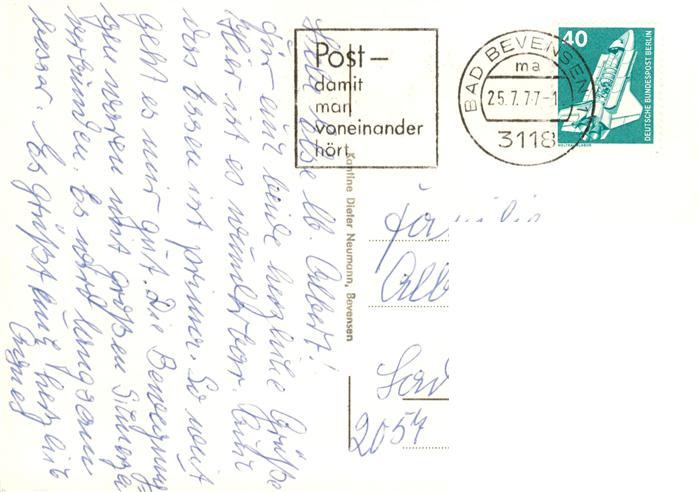 Post –
damit
man
voneinander
hört
BAD BEVENSEN 1
ma
25.7.77-1
3118
40
DEUTSCHE BUNDESPOST BERLIN
WELTRAUMLABOR
lb. Albert!
für euch beide herzliche Grüße
Hier ist es wunderbar. Auch
das Essen ist prima. So weit
geht es mir gut. Die Bewegung
werden mit großen Schmerzen
verbunden. Es wird langsam
besser. Es grüßt euch herzlich
Agnes
Kantine Dieter Neumann, Bevensen
Familie
Alb
2054